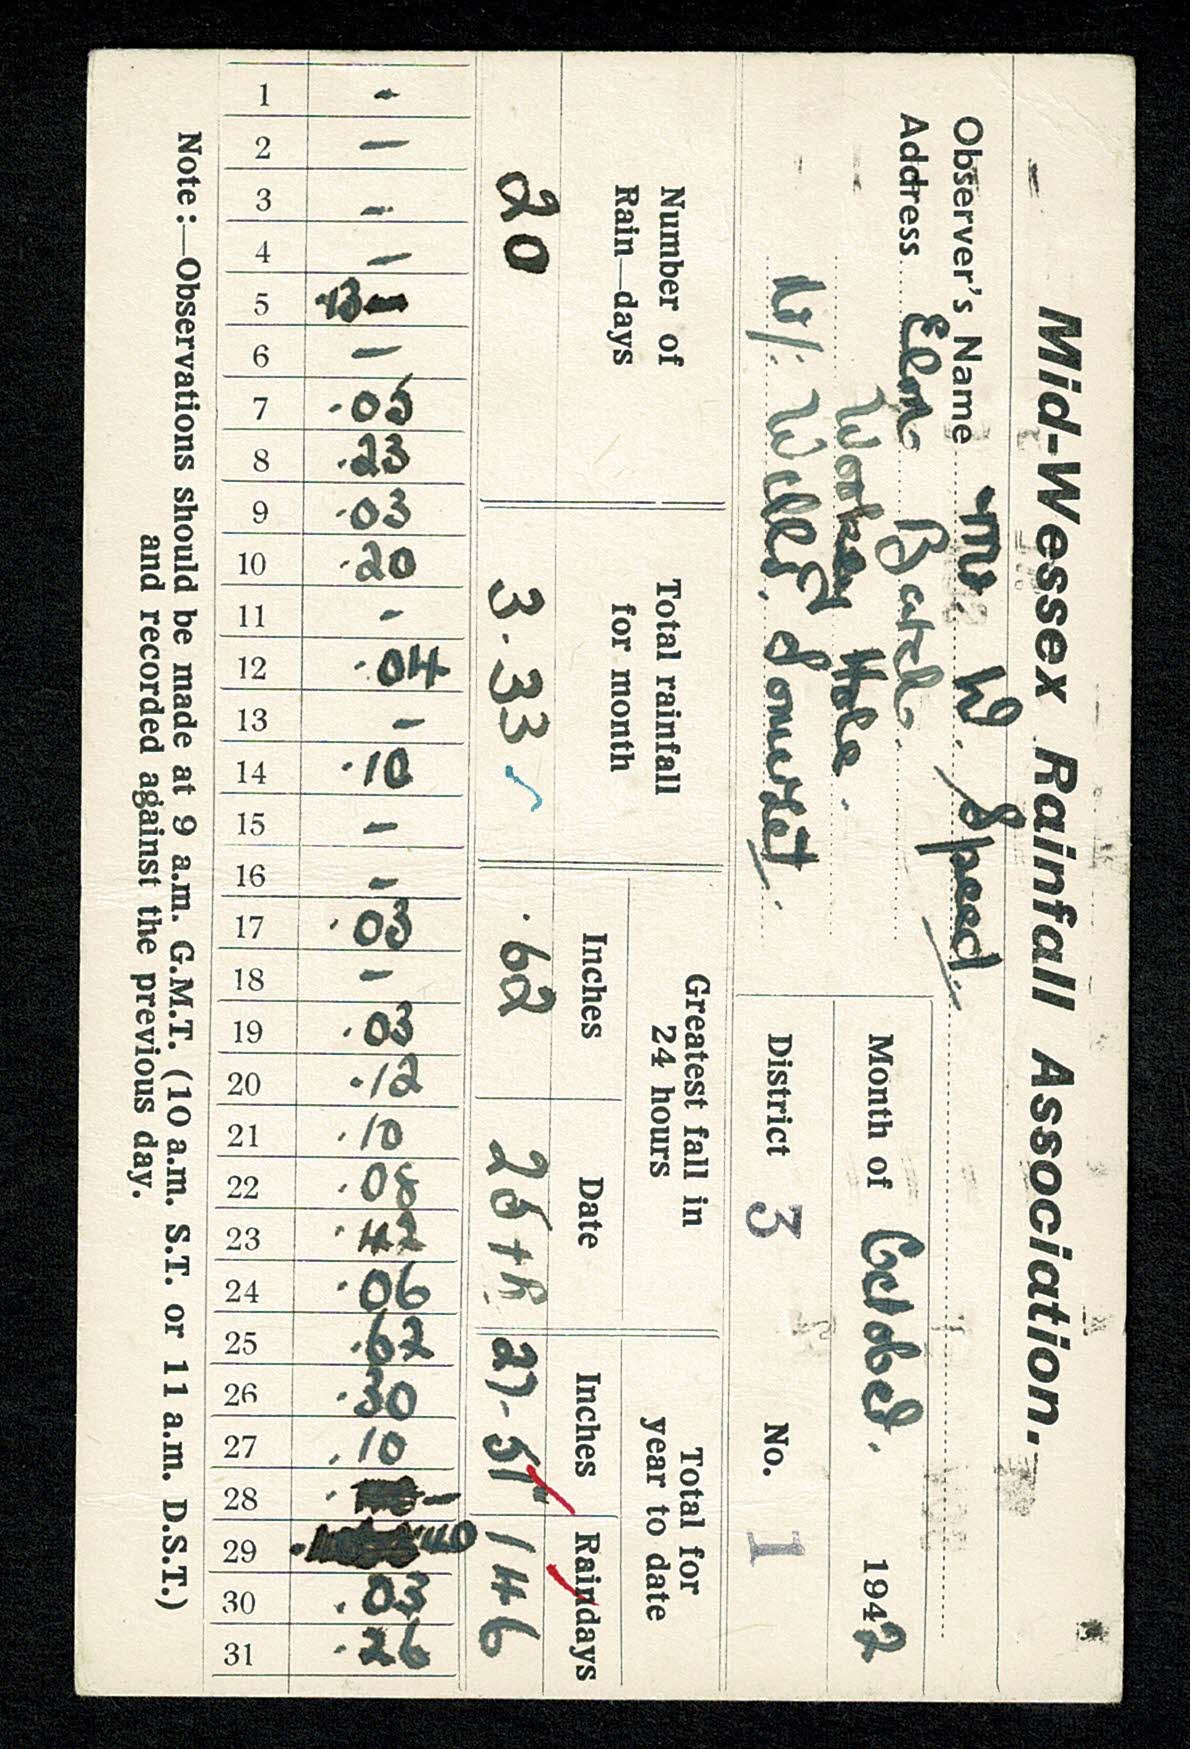 Mid-Wessex Rainfall Association.
Observer's Name Mr. W. Speed.
Address Elm Batch.
Wookey Hole.
Nr. Wells, Somerset.
Month of October. 1942
District 3 No. 1
Number of Rain—days
Total rainfall for month
Greatest fall in 24 hours
Total for year to date
Inches Date Inches Raindays
20 3.33 .62 25th 27.51" 146
1 -
2 -
3 -
4 -
5 .13
6 -
7 .05
8 .23
9 .03
10 .20
11 -
12 .04
13 -
14 .10
15 -
16 -
17 .03
18 -
19 .03
20 .12
21 .10
22 .08
23 .42
24 .06
25 .62
26 .30
27 .10
28 -
29
30 .03
31 .26
Note :—Observations should be made at 9 a.m. G.M.T. (10 a.m. S.T. or 11 a.m. D.S.T.)
and recorded against the previous day.